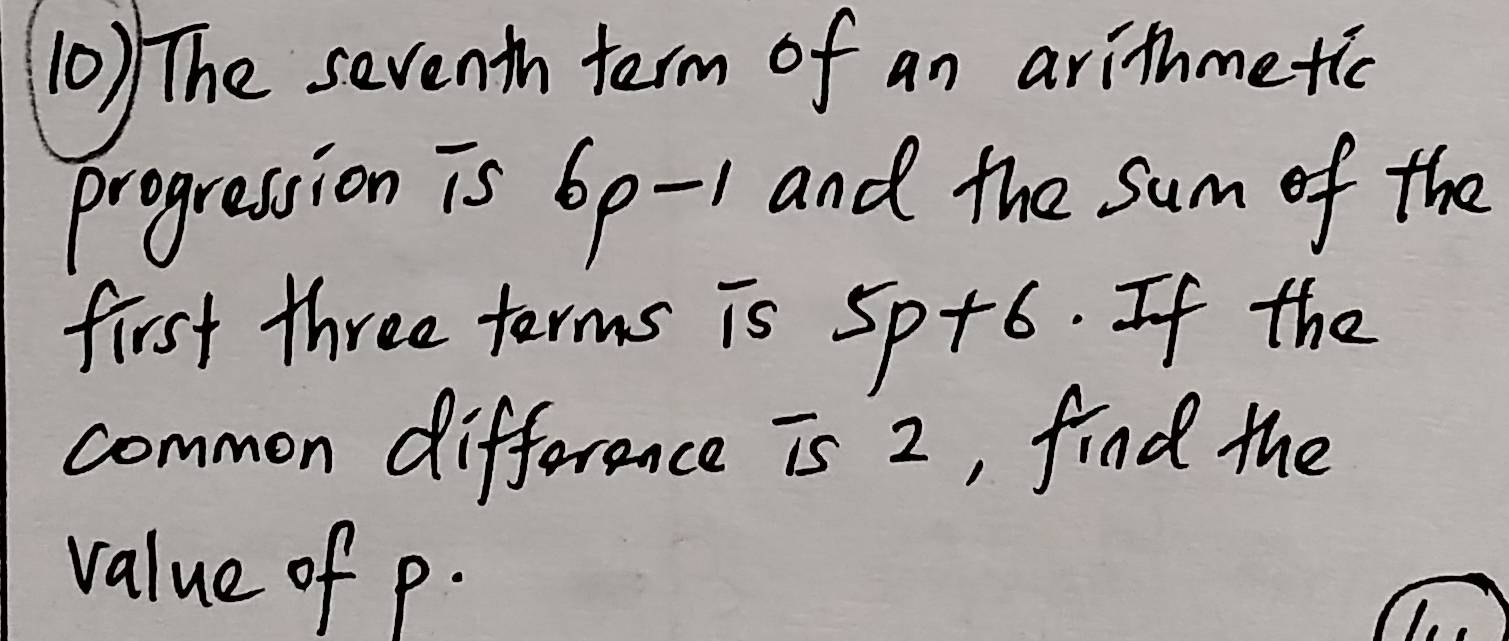 10) The seventh term of an arithmetic
progression is 6p-1 and the sum of the
first three terms is 5p+6. If the
common difference is 2, find the
value of p.